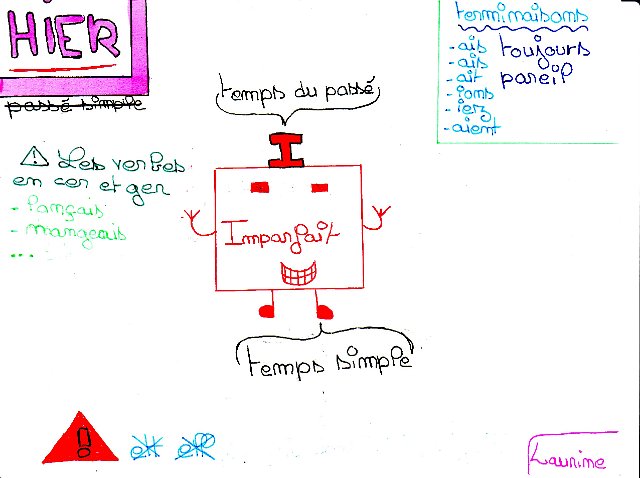 HIER
passé simple
terminaisons
- ais toujours
- ais pareil
- ait
- ions
- iez
- aient
temps du passé
I
⚠ Les verbes
en cer et ger
- lançais
- mangeais
...
Imparfait
temps simple
!
Laurine